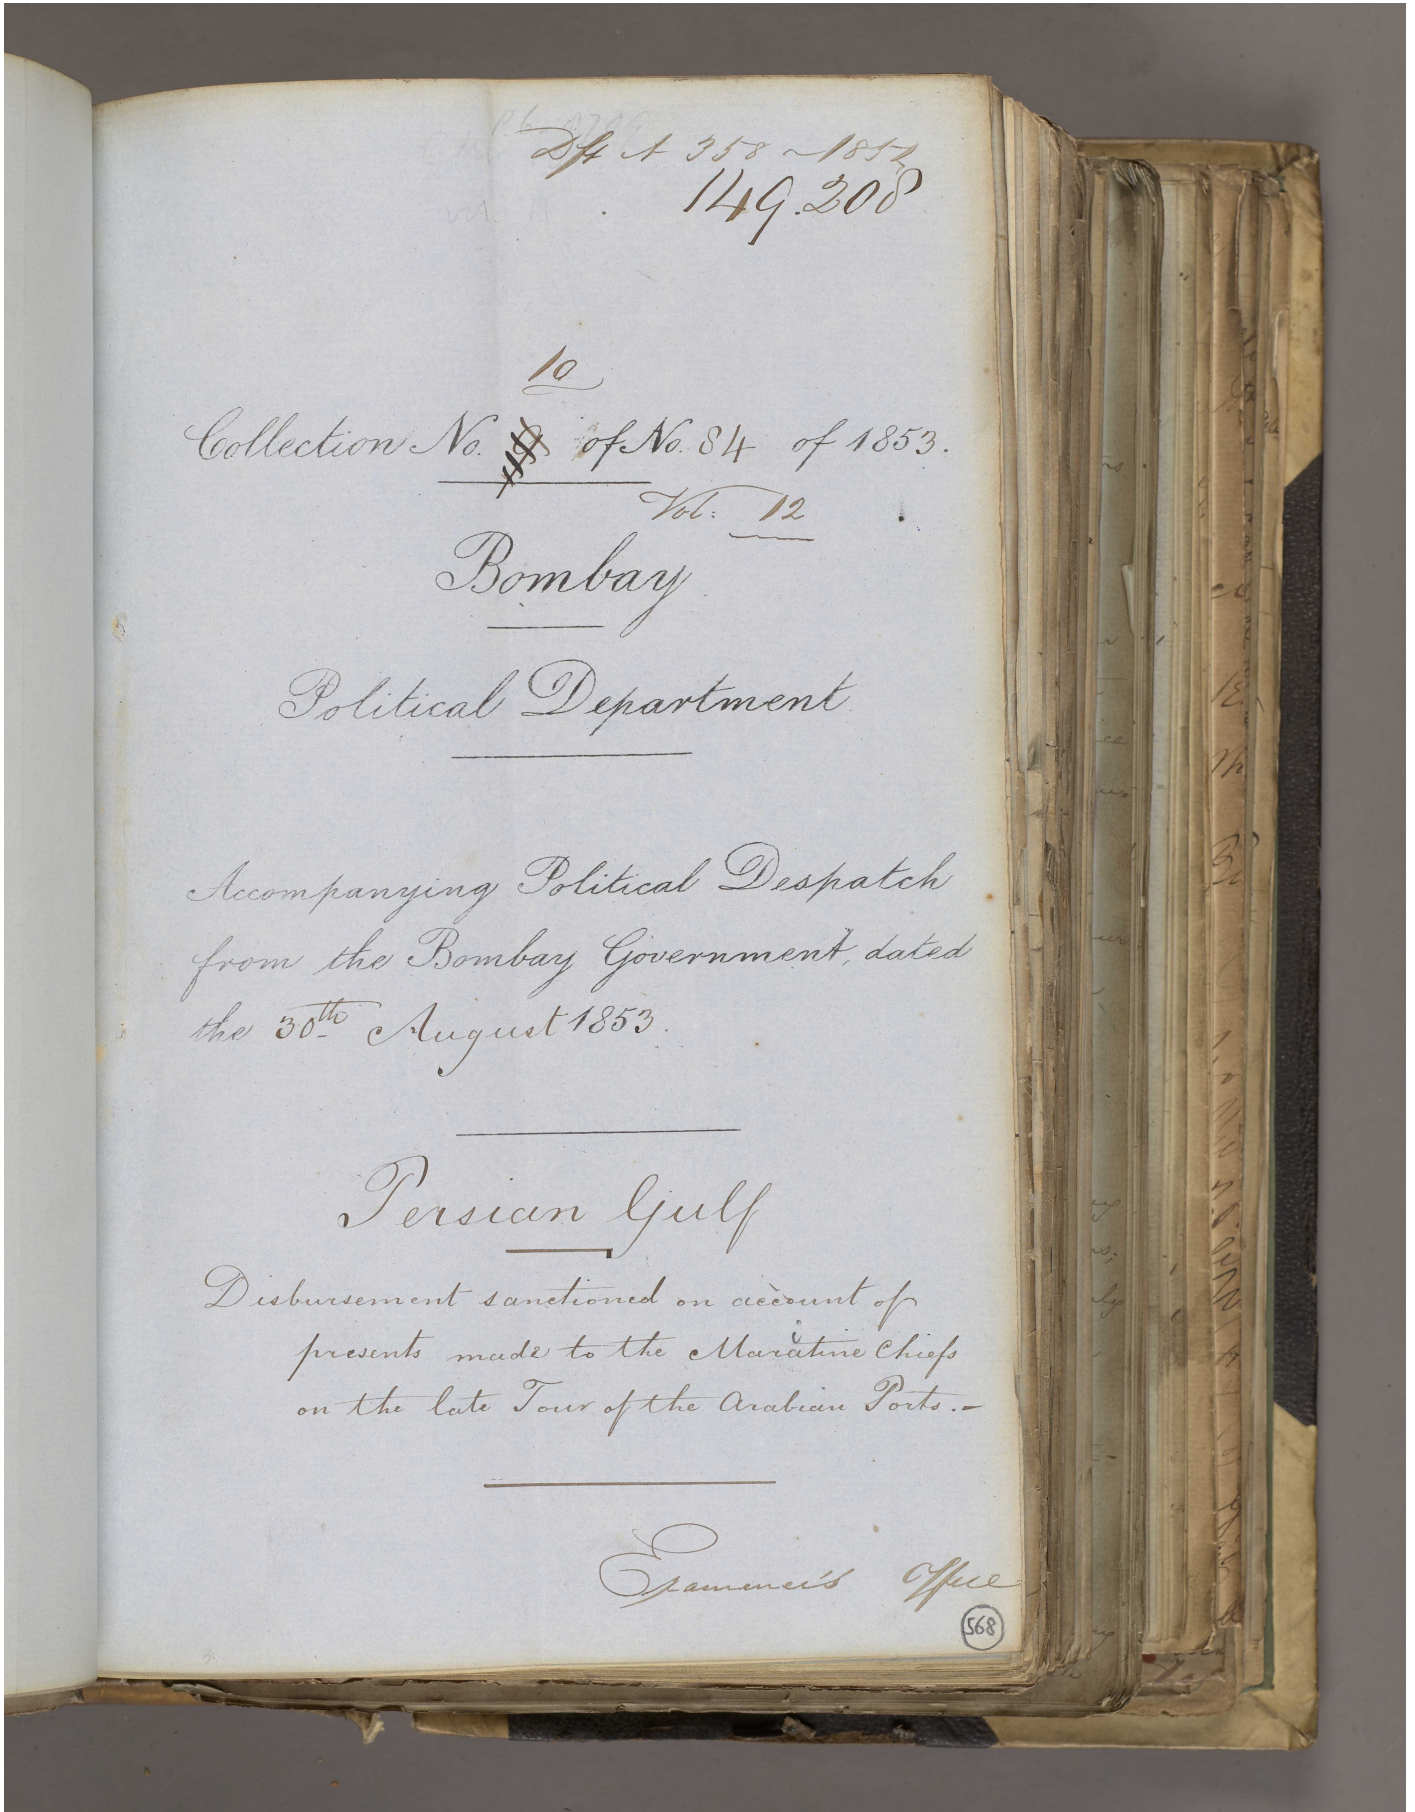 Dft A 358 - 185
149.208
10
Collection No. of No. 84 of 1853.
Vol: 12
Bombay
Political Department
Accompanying Political Despatch
from the Bombay Government, dated
the 30th August 1853.
Persian Gulf
Disbursement sanctioned on account of
presents made to the Maratine Chiefs
on the late Tour of the Arabian Ports.-
Examiner's Office
568